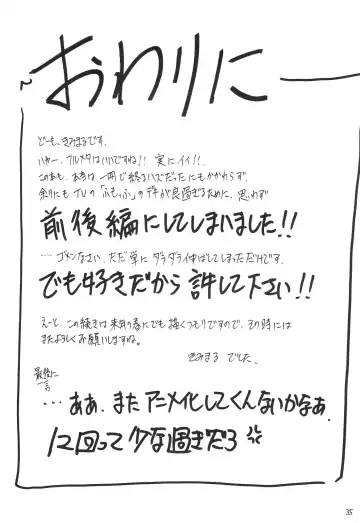 おわりに
どーも、きみまるです。
いやー、フルメタはいいですね!! 実にイイ!!
この本も、本当は一冊で終るハズだったにもかかわらず、
余りにもTVの「ふもっふ」のデキが良過ぎるために、思わず
前後編にしてしまいました!!
…ゴメンなさい、ただ単にダラダラ伸ばしてしまっただけです。
でも好きだから許して下さい!!
えーと、この続きは来年の春にでも描くつもりですので、その時には
またよろしくお願いしますね。
きみまる でした
最後に
一言
…ああ、またアニメ化してくんないかなぁ。
12回って少な過ぎだろ
35